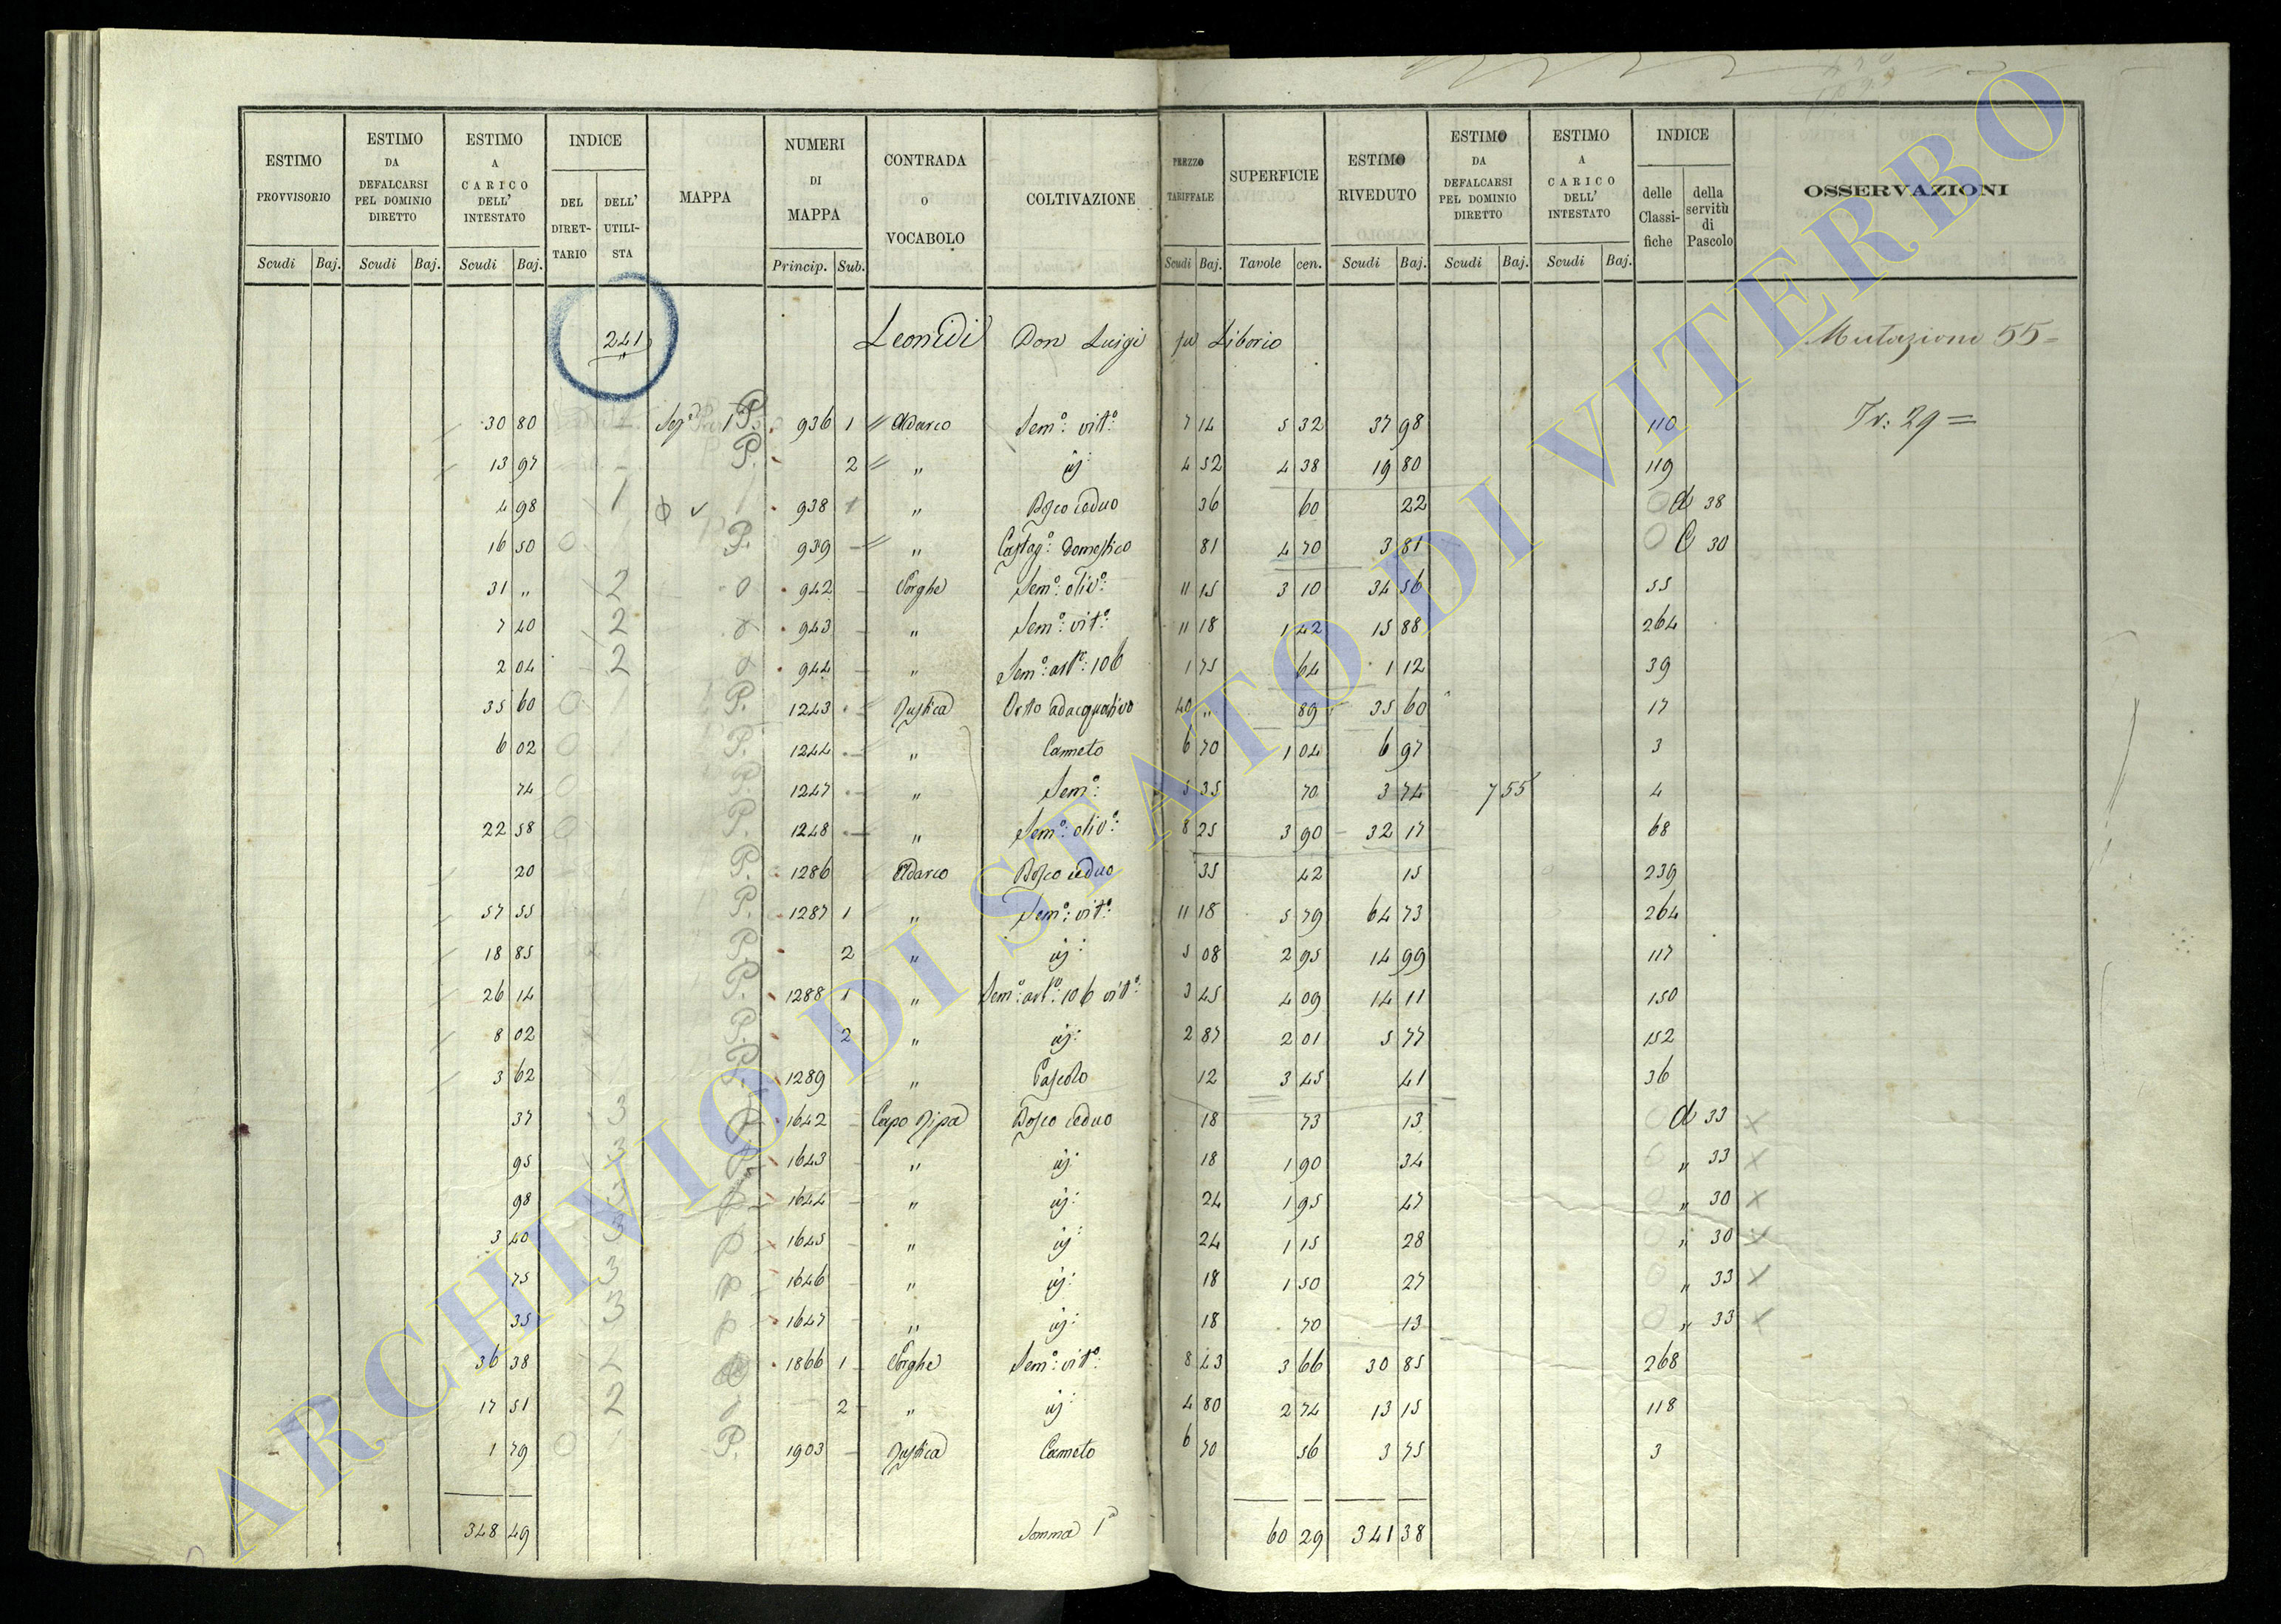 ESTIMO PROVVISORIO Scudi Baj.
ESTIMO DA DEFALCARSI PEL DOMINIO DIRETTO Scudi Baj.
ESTIMO A CARICO DELL' INTESTATO Scudi Baj.
INDICE DEL DIRETTARIO DELL' UTILISTA
MAPPA
NUMERI DI MAPPA Princip. Sub.
CONTRADA O VOCABOLO
COLTIVAZIONE
PREZZO TARIFFALE Scudi Baj.
SUPERFICIE Tavole cen.
ESTIMO RIVEDUTO Scudi Baj.
ESTIMO DA DEFALCARSI PEL DOMINIO DIRETTO Scudi Baj.
ESTIMO A CARICO DELL' INTESTATO Scudi Baj.
INDICE delle Classifiche della servitù di Pascolo
OSSERVAZIONI
241 Leonidi Don Luigi fu Liborio Mutazione 55=
30 80 P. 936 1 Adarco Sem.° vit.° 7 14 5 32 37 98 110 Tr: 29=
13 97 P. 2 " iđ: 4 52 4 38 19 80 119
4 98 1 938 1 " Bosco ceduo 36 60 22 d 38
16 50 0 P. 939 " Castag.° domestico 81 4 70 3 81 C 30
31 " 2 0 942 Sorghe Sem.° oliv.° 11 15 3 10 34 56 55
7 40 2 943 " Sem.° vit.° 11 18 1 42 15 88 264
2 04 2 944 " Sem.° 1 75 64 1 12 39
35 60 0 P. 1243 Rustica Orto adacquativo 40 " 89 35 60 17
6 02 0 P. 1244 " Canneto 6 70 1 04 6 97 3
74 0 P. 1247 " Sem.° 5 35 70 3 74 7 55 4
22 58 0 P. 1248 " Sem.° oliv.° 8 25 3 90 32 17 68
20 P. 1286 Adarco Bosco ceduo 35 42 15 239
57 55 P. 1287 1 " Sem.° vit.° 11 18 5 79 64 73 264
18 85 P. 2 " iđ: 5 08 2 95 14 99 117
26 14 P. 1288 1 " Sem.° vit.° 3 45 4 09 14 11 150
8 02 P. 2 " iđ: 2 87 2 01 5 77 152
3 62 P. 1289 " Pascolo 12 3 45 41 36
37 3 1642 Capo Ripa Bosco ceduo 18 73 13 d 33 x
95 3 1643 " iđ: 18 1 90 34 " 33 x
98 3 1644 " iđ: 24 1 95 47 " 30 x
3 40 3 1645 " iđ: 24 1 15 28 " 30 x
75 3 1646 " iđ: 18 1 50 27 " 33 x
35 3 1647 " iđ: 18 70 13 " 33 x
36 38 2 1866 1 Sorghe Sem.° vit.° 8 43 3 66 30 85 268
17 51 2 2 " iđ: 4 80 2 74 13 15 118
1 79 0 P. 1903 Rustica Canneto 6 70 56 3 75 3
348 49 Somma 1ª 60 29 341 38
ARCHIVIO DI STATO DI VITERBO